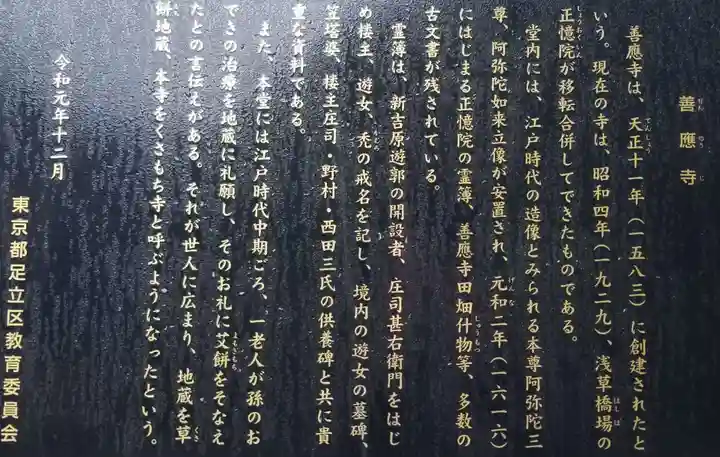 善應寺
善應寺は、天正十一年（一五八三）に創建されたと
いう。現在の寺は、昭和四年（一九二九）、浅草橋場の
正憶院が移転合併してできたものである。
堂内には、江戸時代の造像とみられる本尊阿弥陀三
尊、阿弥陀如来立像が安置され、元和二年（一六一六）
にはじまる正憶院の霊簿、善應寺田畑什物等、多数の
古文書が残されている。
霊簿は、新吉原遊郭の開設者、庄司甚右衛門をはじ
め楼主、遊女、禿の戒名を記し、境内の遊女の墓碑、
笠塔婆、楼主庄司・野村・西田三氏の供養碑と共に貴
重な資料である。
また、本堂には江戸時代中期ごろ、一老人が孫のお
できの治療を地蔵に礼願し、そのお礼に艾餅をそなえ
たとの言伝えがある。それが世人に広まり、地蔵を草
餅地蔵、本寺をくさもち寺と呼ぶようになったという。
令和元年十二月
東京都足立区教育委員会